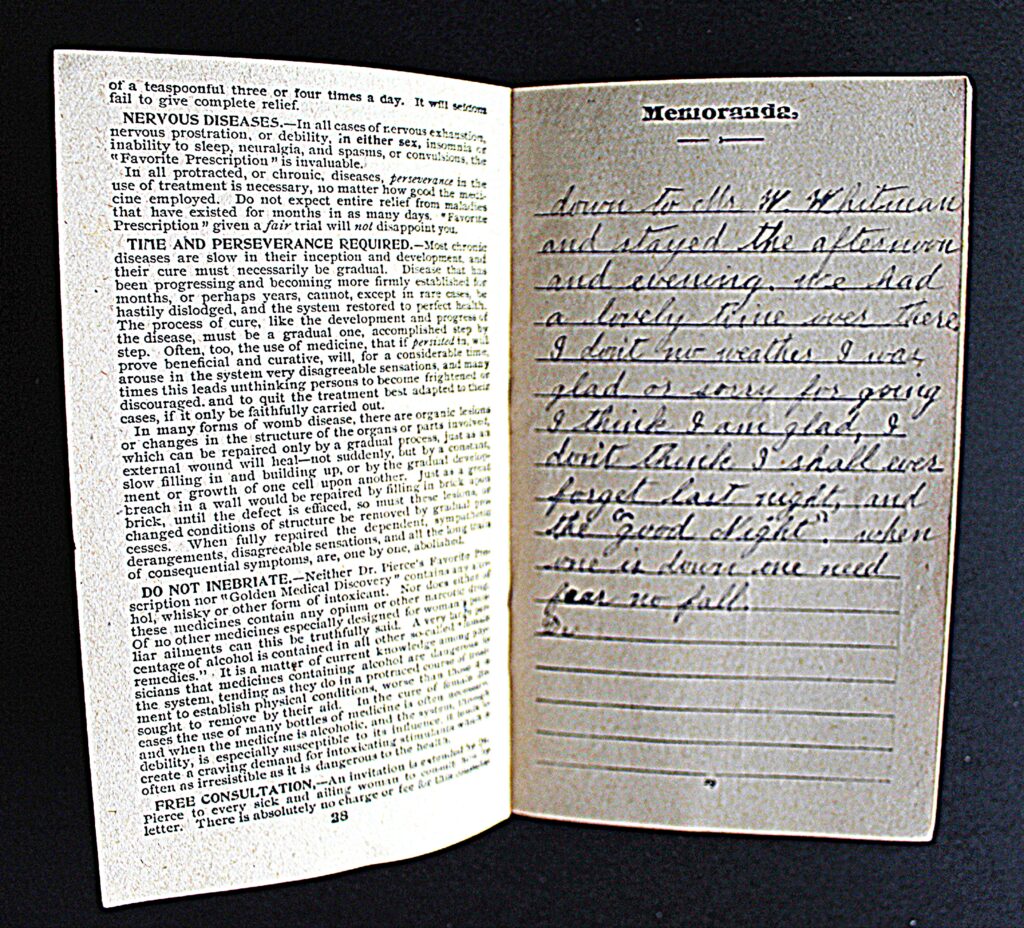 of a teaspoonful three or four times a day. It will seldom
fail to give complete relief.
NERVOUS DISEASES.—In all cases of nervous exhaustion,
nervous prostration, or debility, in either sex, insomnia or
inability to sleep, neuralgia, and spasms, or convulsions, the
"Favorite Prescription" is invaluable.
In all protracted, or chronic, diseases, perseverance in the
use of treatment is necessary, no matter how good the medi-
cine employed. Do not expect entire relief from maladies
that have existed for months in as many days. "Favorite
Prescription" given a fair trial will not disappoint you.
TIME AND PERSEVERANCE REQUIRED.—Most chronic
diseases are slow in their inception and development, and
their cure must necessarily be gradual. Disease that has
been progressing and becoming more firmly established for
months, or perhaps years, cannot, except in rare cases, be
hastily dislodged, and the system restored to perfect health.
The process of cure, like the development and progress of
the disease, must be a gradual one, accomplished step by
step. Often, too, the use of medicine, that if persisted in, will
prove beneficial and curative, will, for a considerable time,
arouse in the system very disagreeable sensations, and many
times this leads unthinking persons to become frightened or
discouraged, and to quit the treatment best adapted to their
cases, if it only be faithfully carried out.
In many forms of womb disease, there are organic lesions
or changes in the structure of the organs or parts involved,
which can be repaired only by a gradual process, just as an
external wound will heal—not suddenly, but by a constant,
slow filling in and building up, or by the gradual develop-
ment or growth of one cell upon another. Just as a great
breach in a wall would be repaired by filling in brick upon
brick, until the defect is effaced, so must these lesions, or
changed conditions of structure be removed by gradual pro-
cesses. When fully repaired the dependent, sympathetic
derangements, disagreeable sensations, and all the long train
of consequential symptoms, are, one by one, abolished.
DO NOT INEBRIATE.—Neither Dr. Pierce's Favorite Pre-
scription nor "Golden Medical Discovery" contains any alco-
hol, whisky or other form of intoxicant. Nor does either of
these medicines contain any opium or other narcotic drug.
Of no other medicines especially designed for woman's pecu-
liar ailments can this be truthfully said. A very large per-
centage of alcohol is contained in all other so-called "female
remedies." It is a matter of current knowledge among phy-
sicians that medicines containing alcohol are dangerous to
the system, tending as they do in a protracted course of treat-
ment to establish physical conditions, worse than those
sought to remove by their aid. In the cure of female
cases the use of many bottles of medicine is often necessary
and when the medicine is alcoholic, and the system, through
debility, is especially susceptible to its influence, it
create a craving demand for intoxicating stimulants
often as irresistible as it is dangerous to the health.
FREE CONSULTATION.—An invitation is extended by Dr.
Pierce to every sick and ailing woman to consult him by
letter. There is absolutely no charge or fee for this
28
Memoranda.
down to Mrs W. Whitman
and stayed the afternoon
and evening. we had
a lovely time over there
I don't no weather I was
glad or sorry for going
I think I am glad, I
don't think I shall ever
forget last night, and
the "Good Night". when
one is down one need
fear no fall.